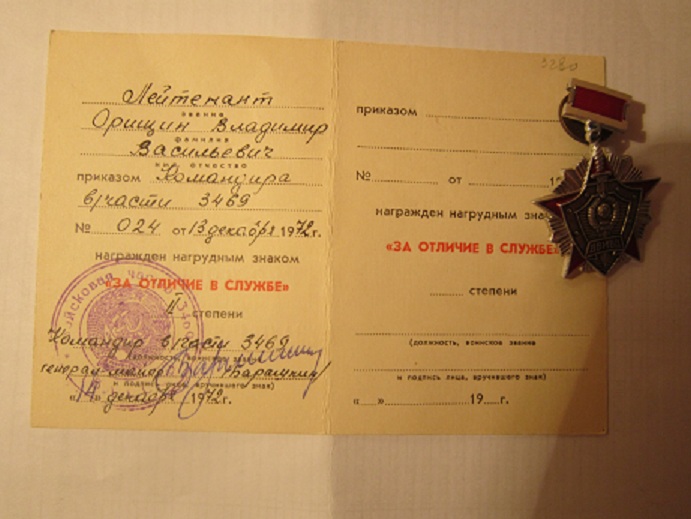 Лейтенант
звание
Орищин Владимир
фамилия
Васильевич
имя отчество
приказом Командира
в/части 3469
№ 024 от 13 декабря 1972 г.
награжден нагрудным знаком
«ЗА ОТЛИЧИЕ В СЛУЖБЕ»
II степени
Командир в/части 3469
(должность, воинское
генерал-майор
и подпись лица, вручившего знак)
декабря 1972 г.
3280
приказом
№ от
награжден нагрудным
«ЗА ОТЛИЧИЕ В СЛУЖБЕ
степени
(должность, воинское звание
и подпись лица, вручившего знак)
« » 19 г.